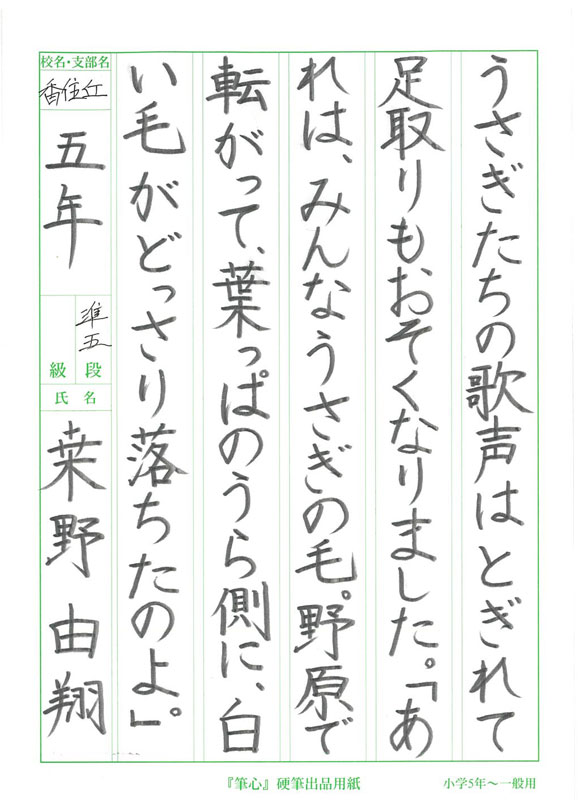 うさぎたちの歌声はとぎれて
足取りもおそくなりました。「あ
れは、みんなうさぎの毛。野原で
転がって、葉っぱのうら側に、白
い毛がどっさり落ちたのよ」。
校名・支部名
香住丘
五年
準五
段
級
氏名
桒野 由翔
『筆心』硬筆出品用紙
小学5年～一般用